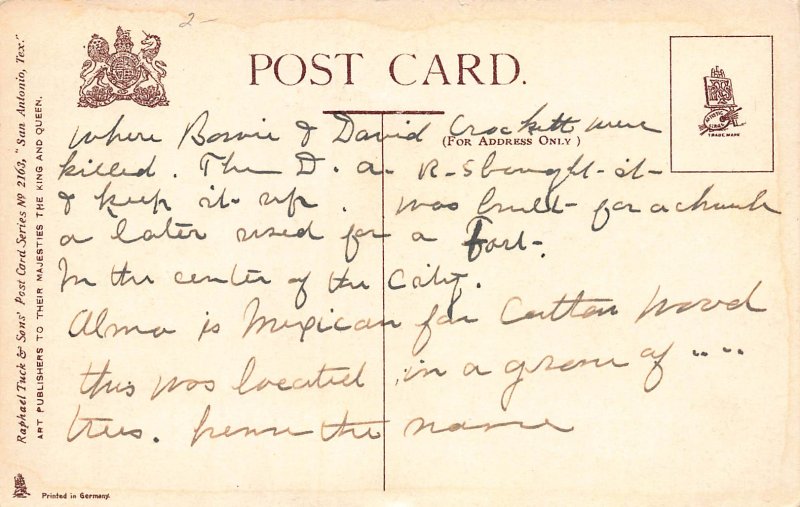 2-
POST CARD.
(FOR ADDRESS ONLY)
TRADE MARK
Where Bowie & David Crockett were
killed. The D. a. R-s bought it
& keep it up. was built for a church
a later used for a Fort.
In the center of the City.
Alma is Mexican for Cotton Wood
this was located in a grove of " "
trees. hence the name
Raphael Tuck & Sons' Post Card Series Nº 2163, "San Antonio, Tex."
ART PUBLISHERS TO THEIR MAJESTIES THE KING AND QUEEN.
Printed in Germany.